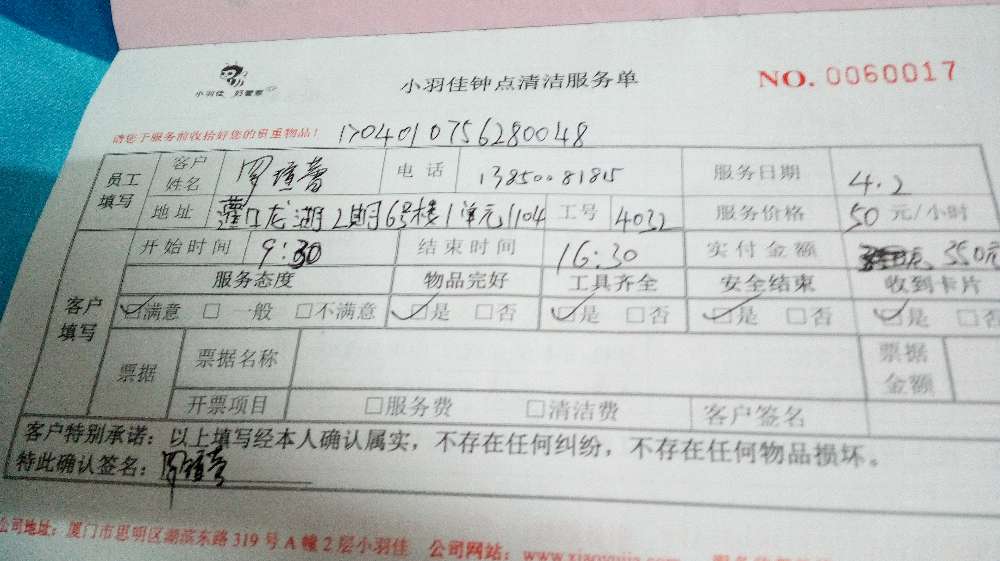 小羽佳 好管家
小羽佳钟点清洁服务单
NO. 0060017
请您于服务前收拾好您的贵重物品!
1704010756280048
员工填写
客户姓名 罗瑄蕾 电话 13850081815 服务日期 4.2
地址 灌口龙湖2期6号楼1单元1104 工号 4032 服务价格 50 元/小时
客户填写
开始时间 9:30 结束时间 16:30 实付金额 350元
服务态度 物品完好 工具齐全 安全结束 收到卡片
☑满意 □ 一般 □不满意 ☑是 □否 ☑是 □否 ☑是 □否 ☑是 □否
票据 票据名称 票据金额
开票项目 □服务费 □清洁费 客户签名
客户特别承诺:以上填写经本人确认属实,不存在任何纠纷,不存在任何物品损坏。
特此确认签名:罗瑄蕾
公司地址:厦门市思明区湖滨东路 319 号 A 幢 2 层小羽佳 公司网站:www.xiaoyujia.com